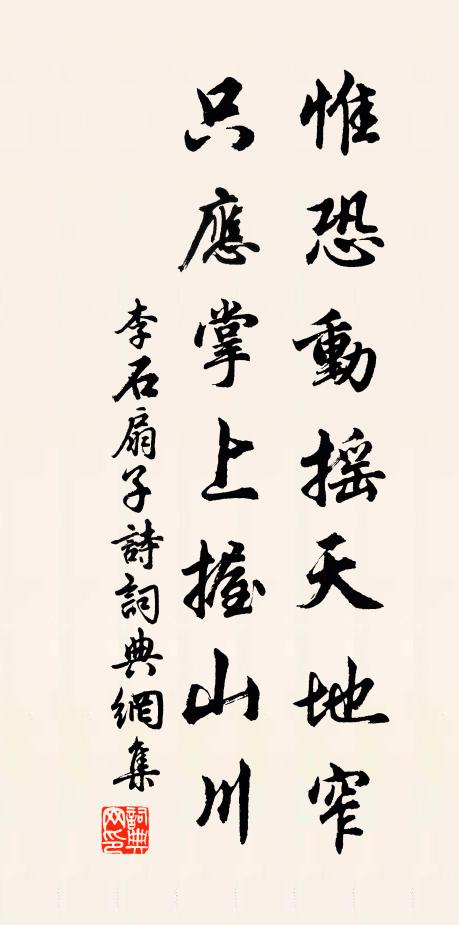 惟恐動搖天地窄
只應掌上握山川
李石扇子詩詞典網集
詞典網印